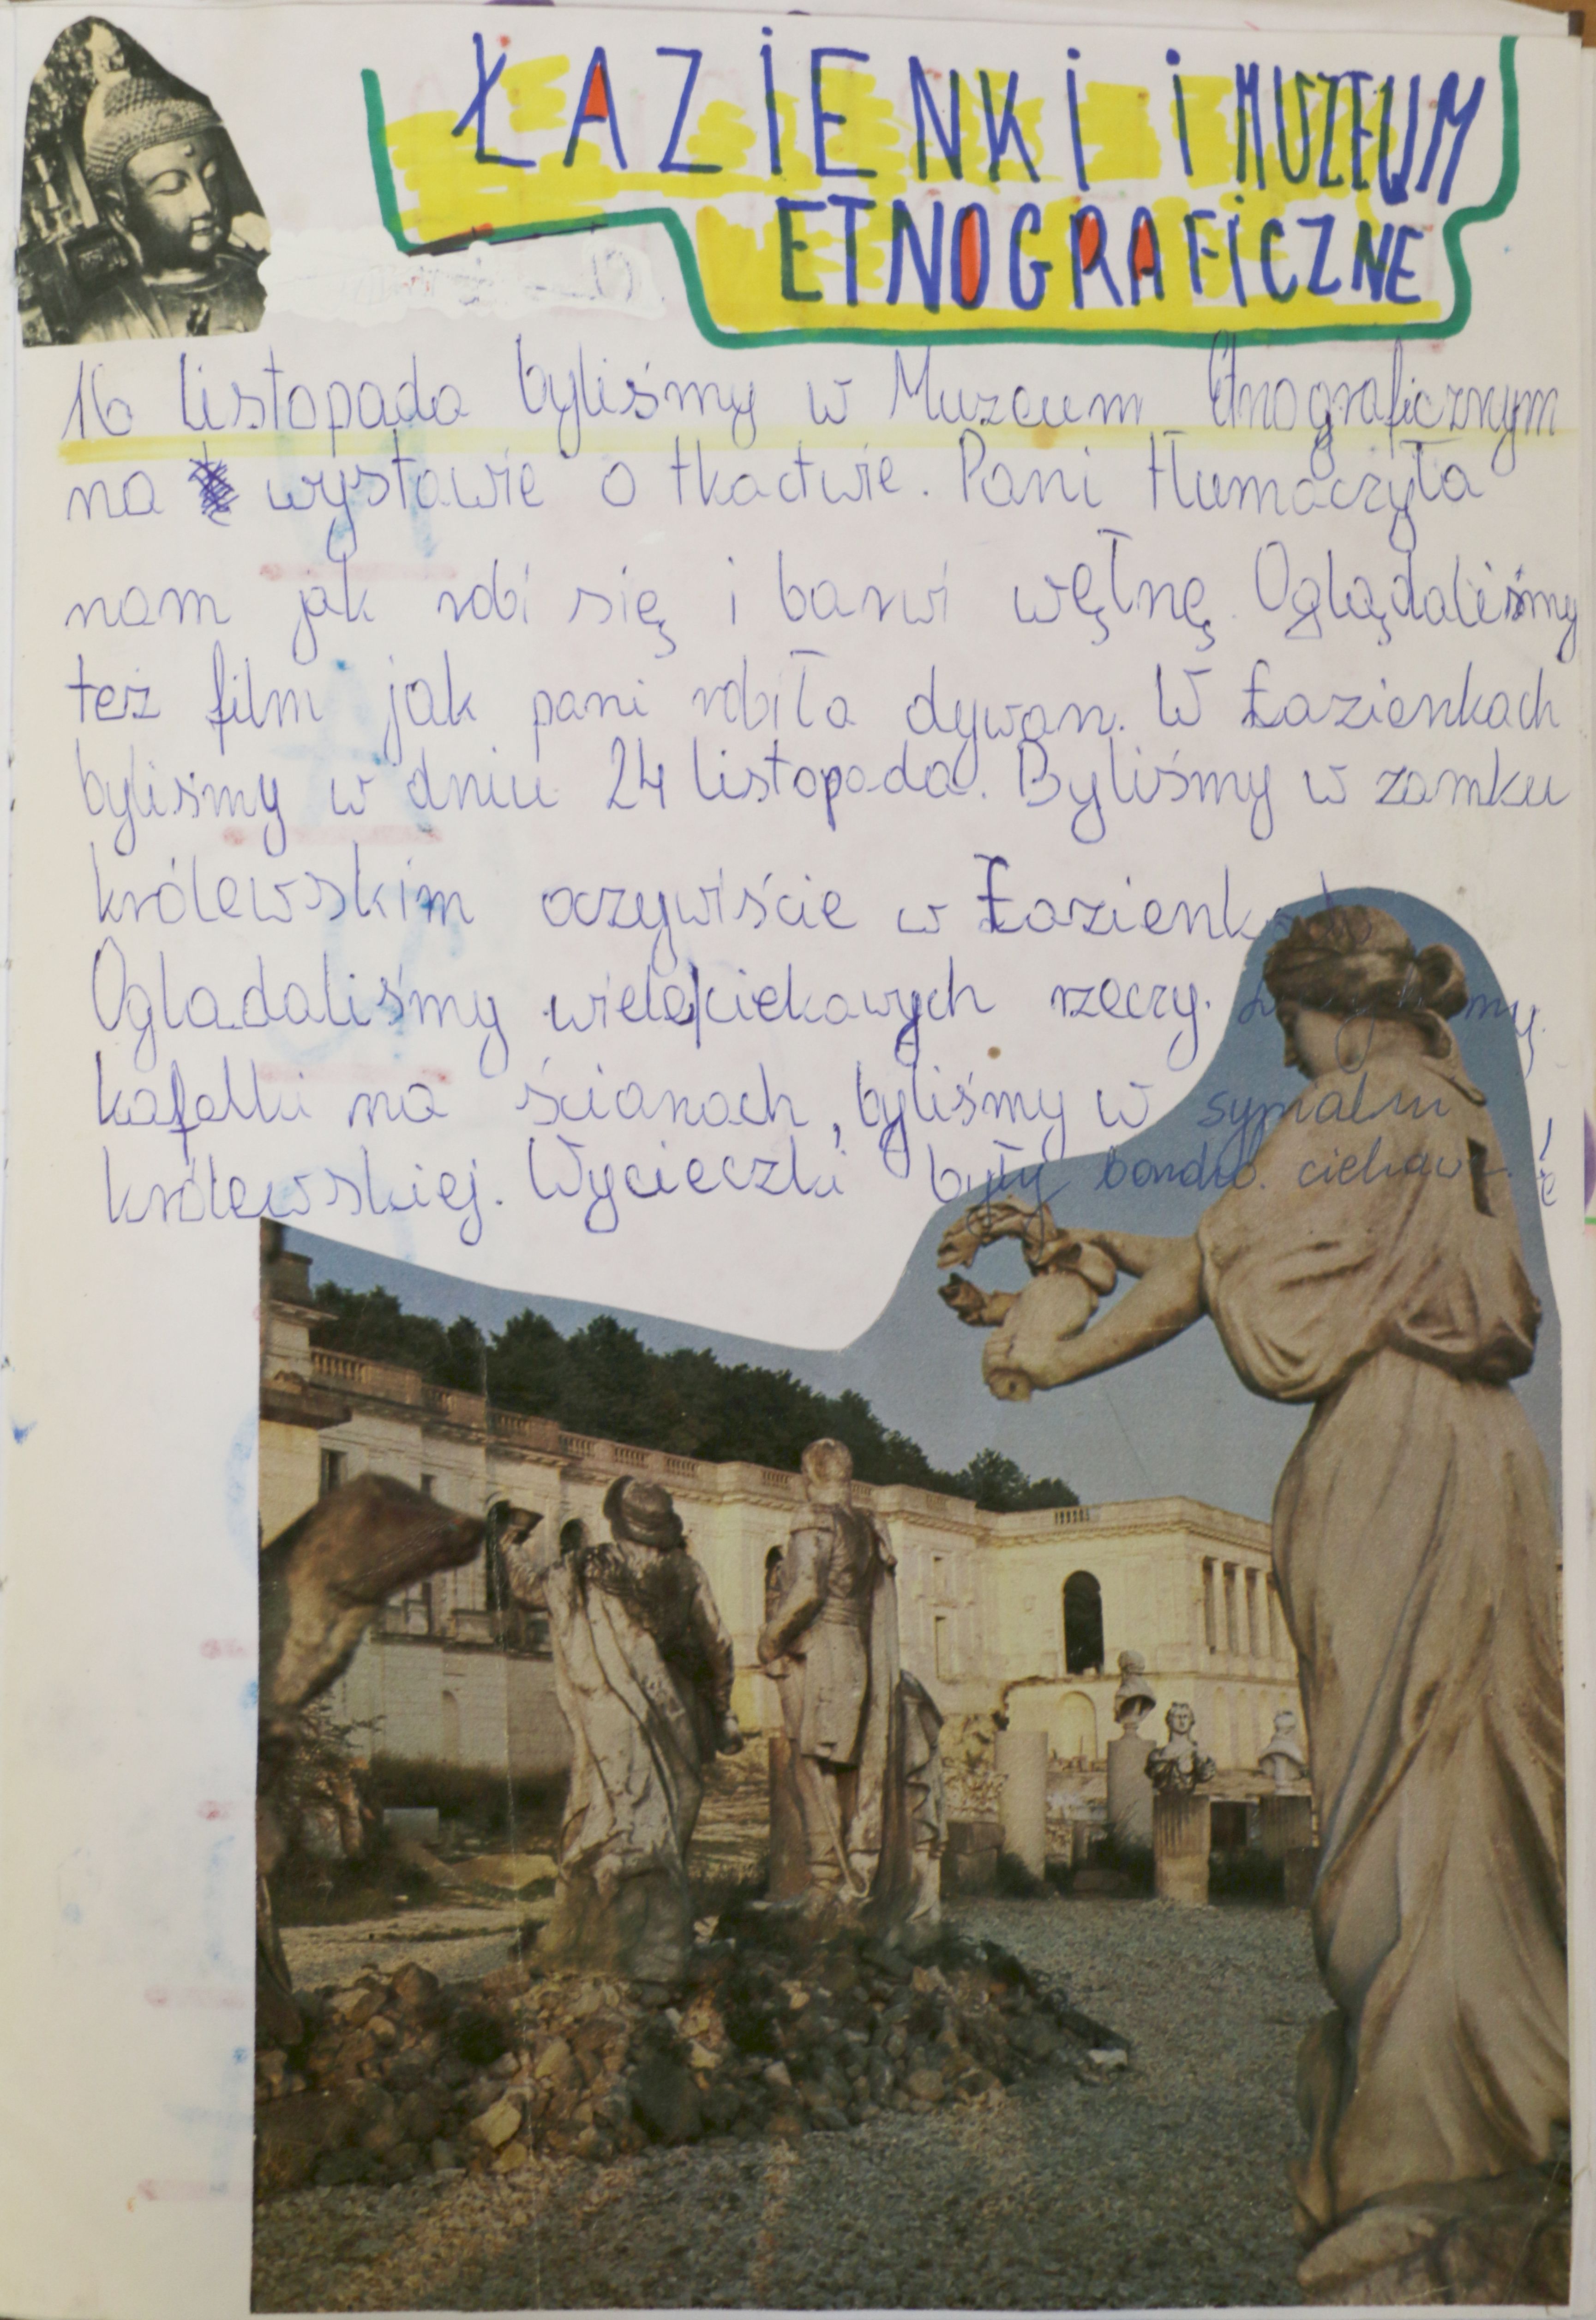 ŁAZIENKI I MUZEUM
ETNOGRAFICZNE
16 listopada byliśmy w Muzeum Etnograficznym
na wystawie o tkactwie. Pani tłumaczyła
nam jak robi się i barwi węłnę. Oglądaliśmy
też film jak pani robiła dywan. W Łazienkach
byliśmy w dniu 24 listopada. Byliśmy w zamku
królewskim oczywiście w Łazienkach
Ogladaliśmy wiele ciekawych rzeczy.
kafelki na ścianach, byliśmy w sypialni
królewskiej. Wycieczki były bardzo ciekawe.